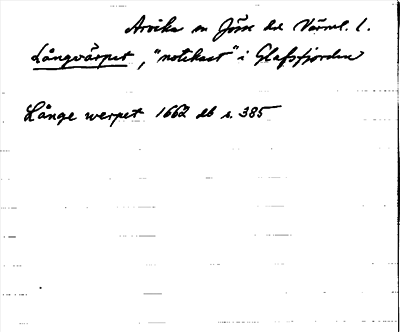 Arvika sn Jösse hd Värml. l.
Långvärpet, "notekast" i Glafsfjorden
Långe werpet 1662 db s. 385